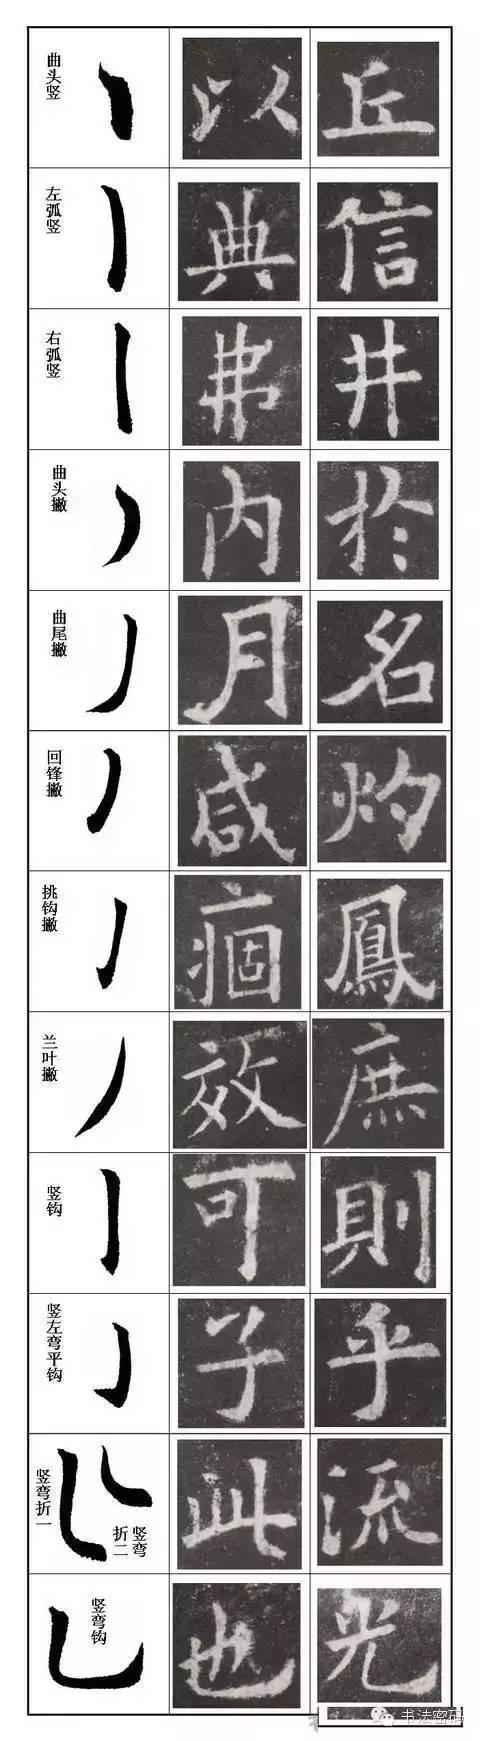 曲头竖 以 丘
左弧竖 典 信
右弧竖 弗 井
曲头撇 内 於
曲尾撇 月 名
回锋撇 咸 灼
挑钩撇 痼 鳳
兰叶撇 效 庶
竖钩 可 則
竖左弯平钩 子 乎
竖弯折一 竖弯折二 此 流
竖弯钩 也 光
书法密码